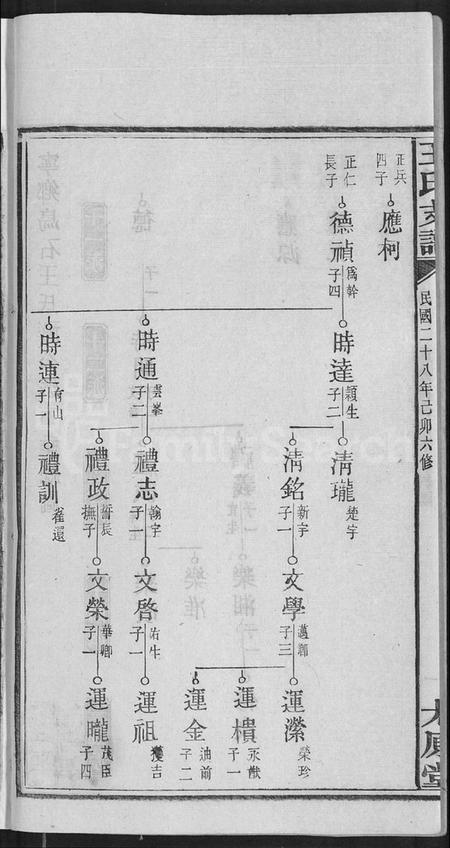 王氏支譜
民國二十八年己卯六修
正兵
四子
應柯
正仁
長子
德禎
為幹
子四
時達
穎生
子二
清瓏
楚宇
清銘
新宇
子一
文學
邁鄰
子三
運瀠
榮珍
運樻
永猷
子一
運金
油前
子二
時通
雲峯
子二
禮志
翰宇
子一
文啓
佑生
子一
運祖
獲吉
禮政
晉長
撫子
文榮
華卿
子一
運曨
茂臣
子四
時連
有山
子一
禮訓
寧鄉烏石王氏
FamilySearch